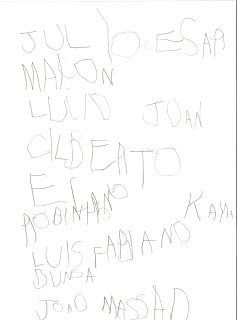 JULIO CESAR
MAICON
LUCIO JUAN
GILBERTO
ELANO
ROBINHO
KAKA
LUIS FABIANO
BUNDA
JOAO MASSAD